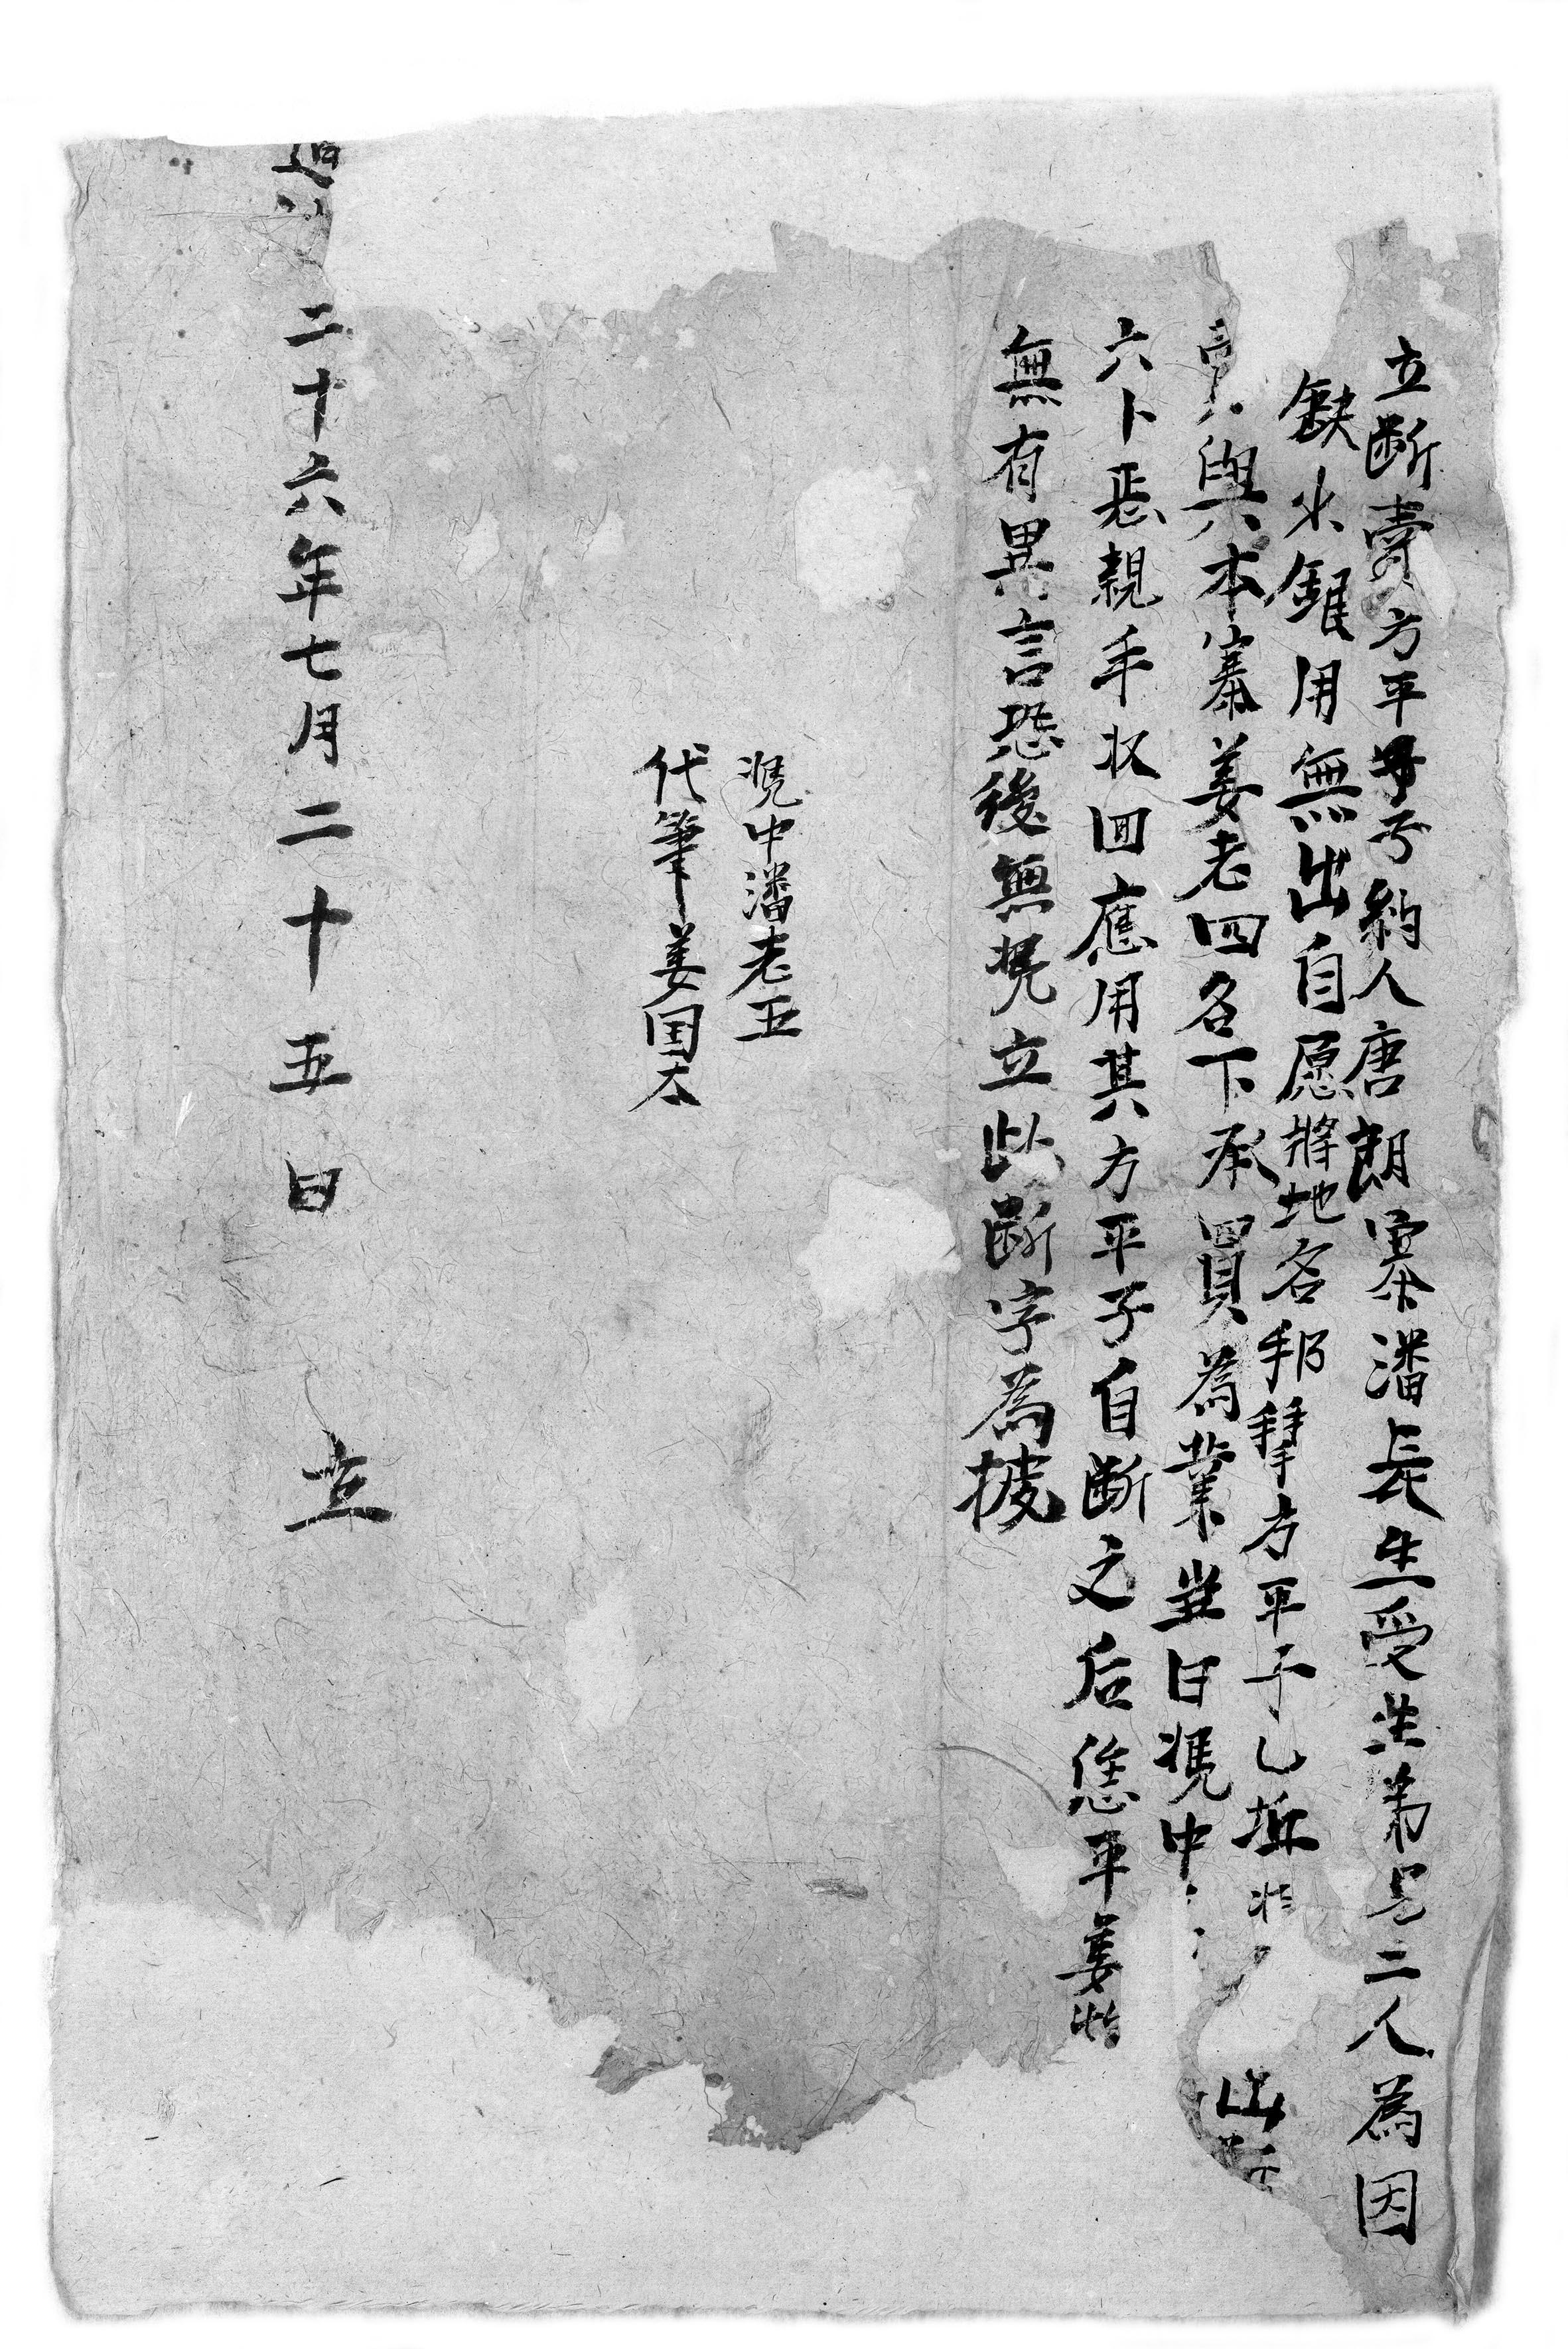 立断賣方平子字約人唐朗寨潘長生受生弟兄二人為因
缺少錢用無出自愿將地名邦方平子乙坵將
賣與本寨姜老四名下承買為業當日凴中
六卜恶親手收回應用其方平子自断之后恁平姜
無有異言恐後無凴立此断字為據
凴中潘老五
代筆姜国太
道 二十六年七月二十五日 立